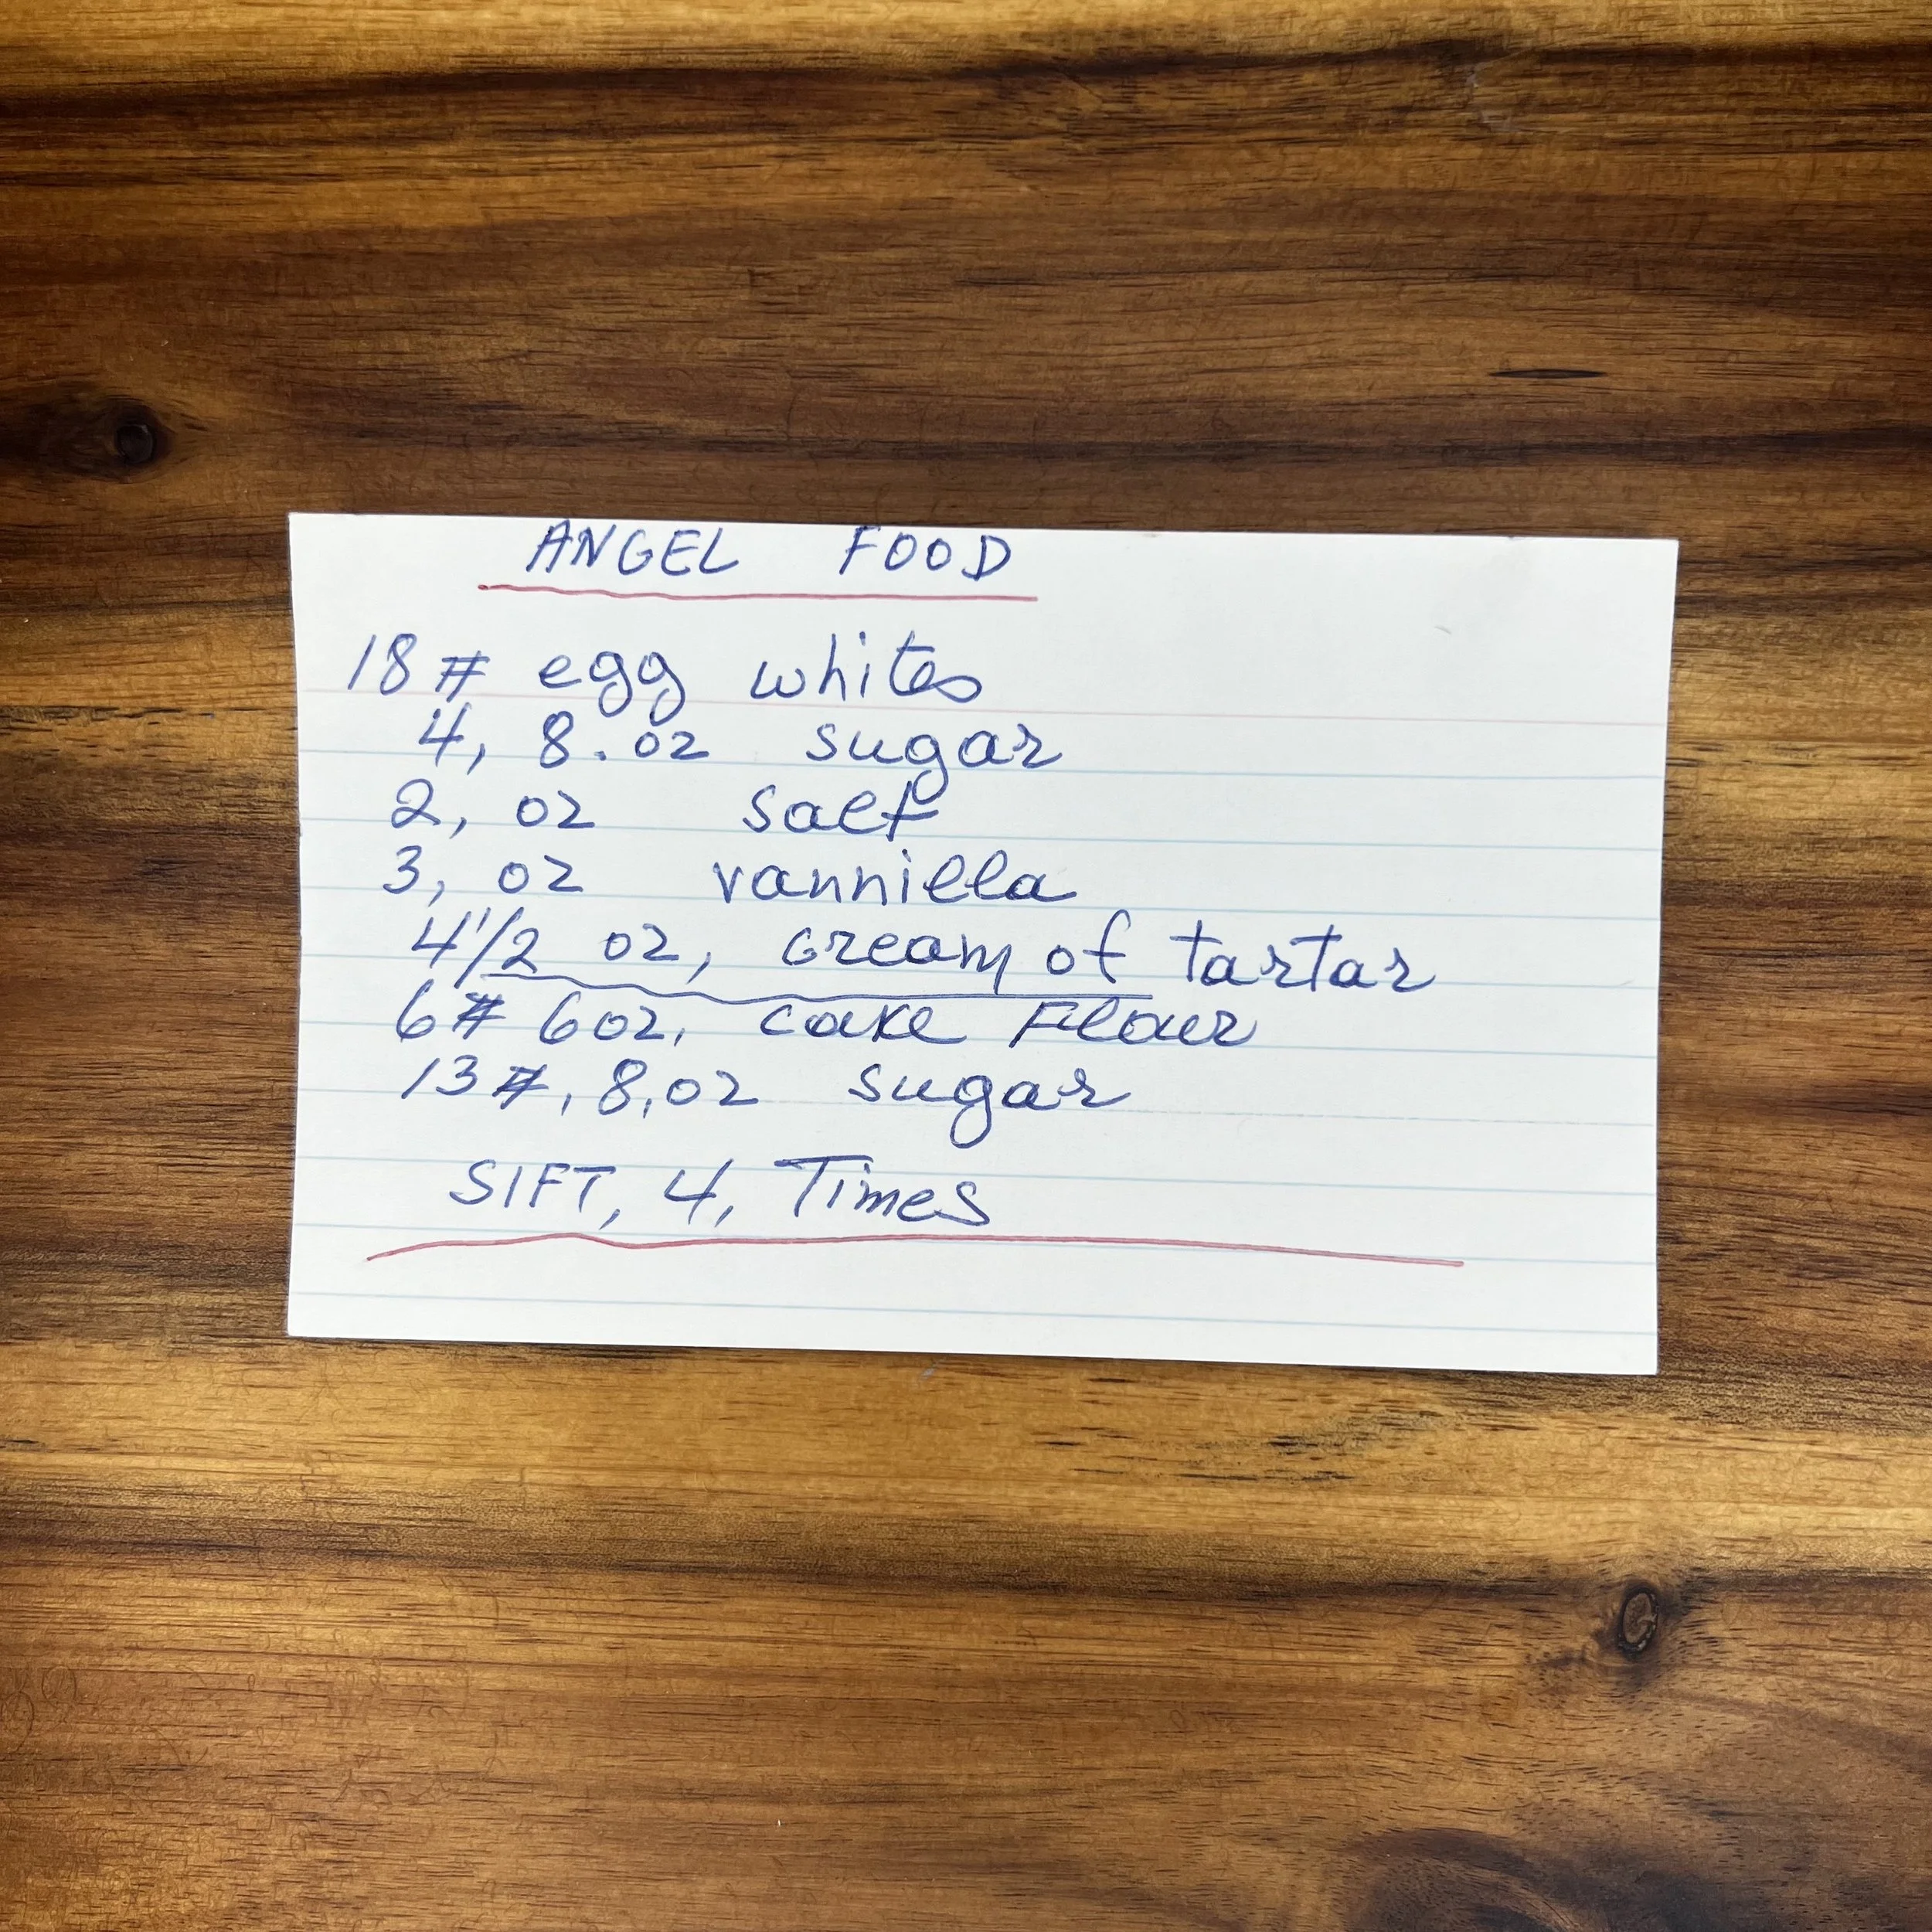 ANGEL FOOD
18 # egg whites
4, 8.oz sugar
2, oz salt
3, oz vannilla
4 1/2 oz, cream of tartar
6# 6oz, cake Flour
13#, 8,oz sugar
SIFT, 4, Times